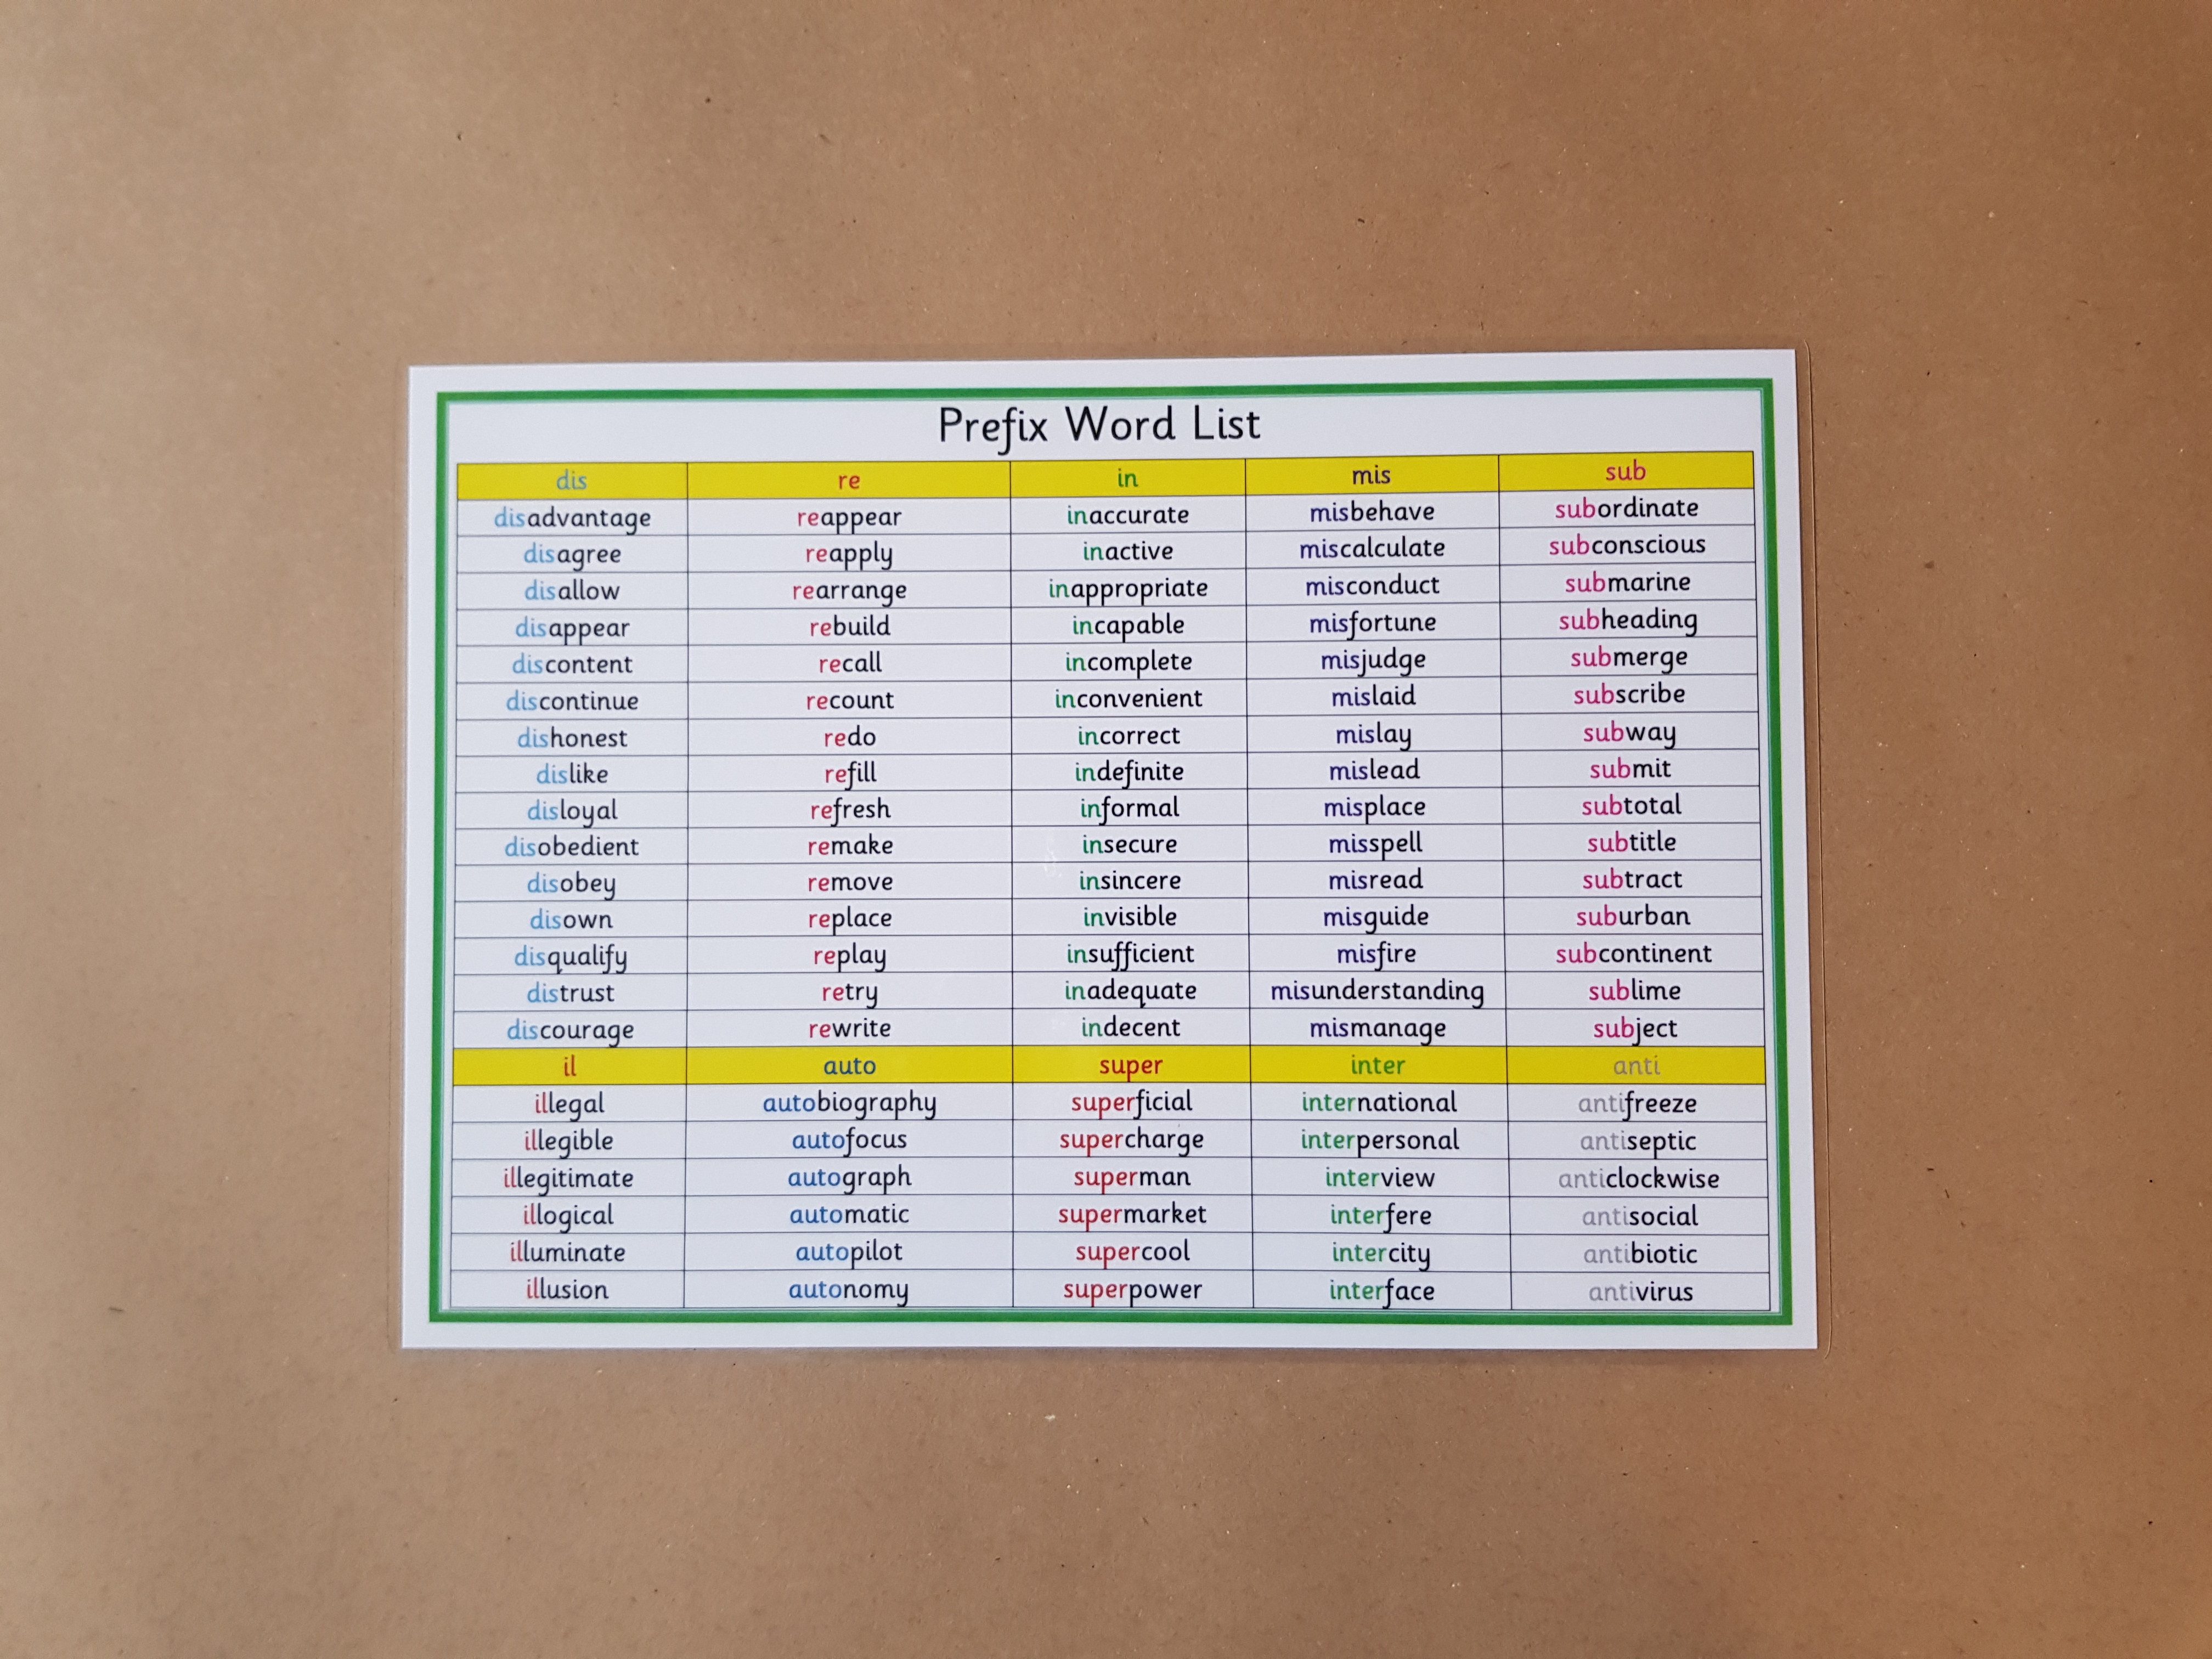 Prefix Word List
dis re in mis sub
disadvantage reappear inaccurate misbehave subordinate
disagree reapply inactive miscalculate subconscious
disallow rearrange inappropriate misconduct submarine
disappear rebuild incapable misfortune subheading
discontent recall incomplete misjudge submerge
discontinue recount inconvenient mislaid subscribe
dishonest redo incorrect mislay subway
dislike refill indefinite mislead submit
disloyal refresh informal misplace subtotal
disobedient remake insecure misspell subtitle
disobey remove insincere misread subtract
disown replace invisible misguide suburban
disqualify replay insufficient misfire subcontinent
distrust retry inadequate misunderstanding sublime
discourage rewrite indecent mismanage subject
il auto super inter anti
illegal autobiography superficial international antifreeze
illegible autofocus supercharge interpersonal antiseptic
illegitimate autograph superman interview anticlockwise
illogical automatic supermarket interfere antisocial
illuminate autopilot supercool intercity antibiotic
illusion autonomy superpower interface antivirus